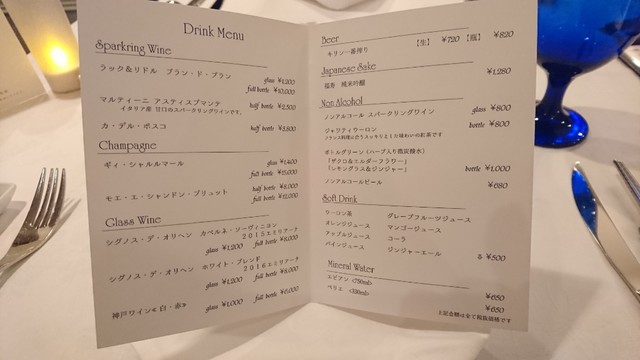 Drink Menu
Sparkring Wine
ラック&リドル ブラン・ド・ブラン
glass ¥1,200
full bottle ¥10,000
マルティーニ アスティスプマンテ half bottle ¥2,500
イタリア産 甘口のスパークリングワインです。
カ・デル・ボスコ half bottle ¥8,800
Champagne
ギィ・シャルルマール glass ¥1,400
full bottle ¥15,000
half bottle ¥8,000
モエ・エ・シャンドン・ブリュット full bottle ¥15,000
Glass Wine
シグノス・デ・オリヘン カベルネ・ソーヴィニヨン
2015エミリアーナ
glass ¥1,200 full bottle ¥8,000
シグノス・デ・オリヘン ホワイト・ブレンド
2016エミリアーナ
glass ¥1,200 full bottle ¥8,000
神戸ワイン≪白・赤≫ glass ¥1,000 full bottle ¥6,000
Beer
キリン一番搾り 【生】 ¥720 【瓶】 ¥820
Japanese Sake
純米吟醸 ¥1,280
Non Alcohol
ノンアルコール スパークリングワイン glass ¥800
ジャワティウーロン bottle ¥800
ボトルグリーン(ハーブ入り微炭酸水)
「ザクロ&エルダーフラワー」
「レモングラス&ジンジャー」 bottle ¥1,000
ノンアルコールビール ¥680
Soft Drink
ウーロン茶 グレープフルーツジュース
オレンジジュース マンゴージュース
アップルジュース コーラ
パインジュース ジンジャーエール 各 ¥500
Mineral Water
エビアン <750ml> ¥650
ペリエ <330ml> ¥650
お記金額は全て税抜価格です